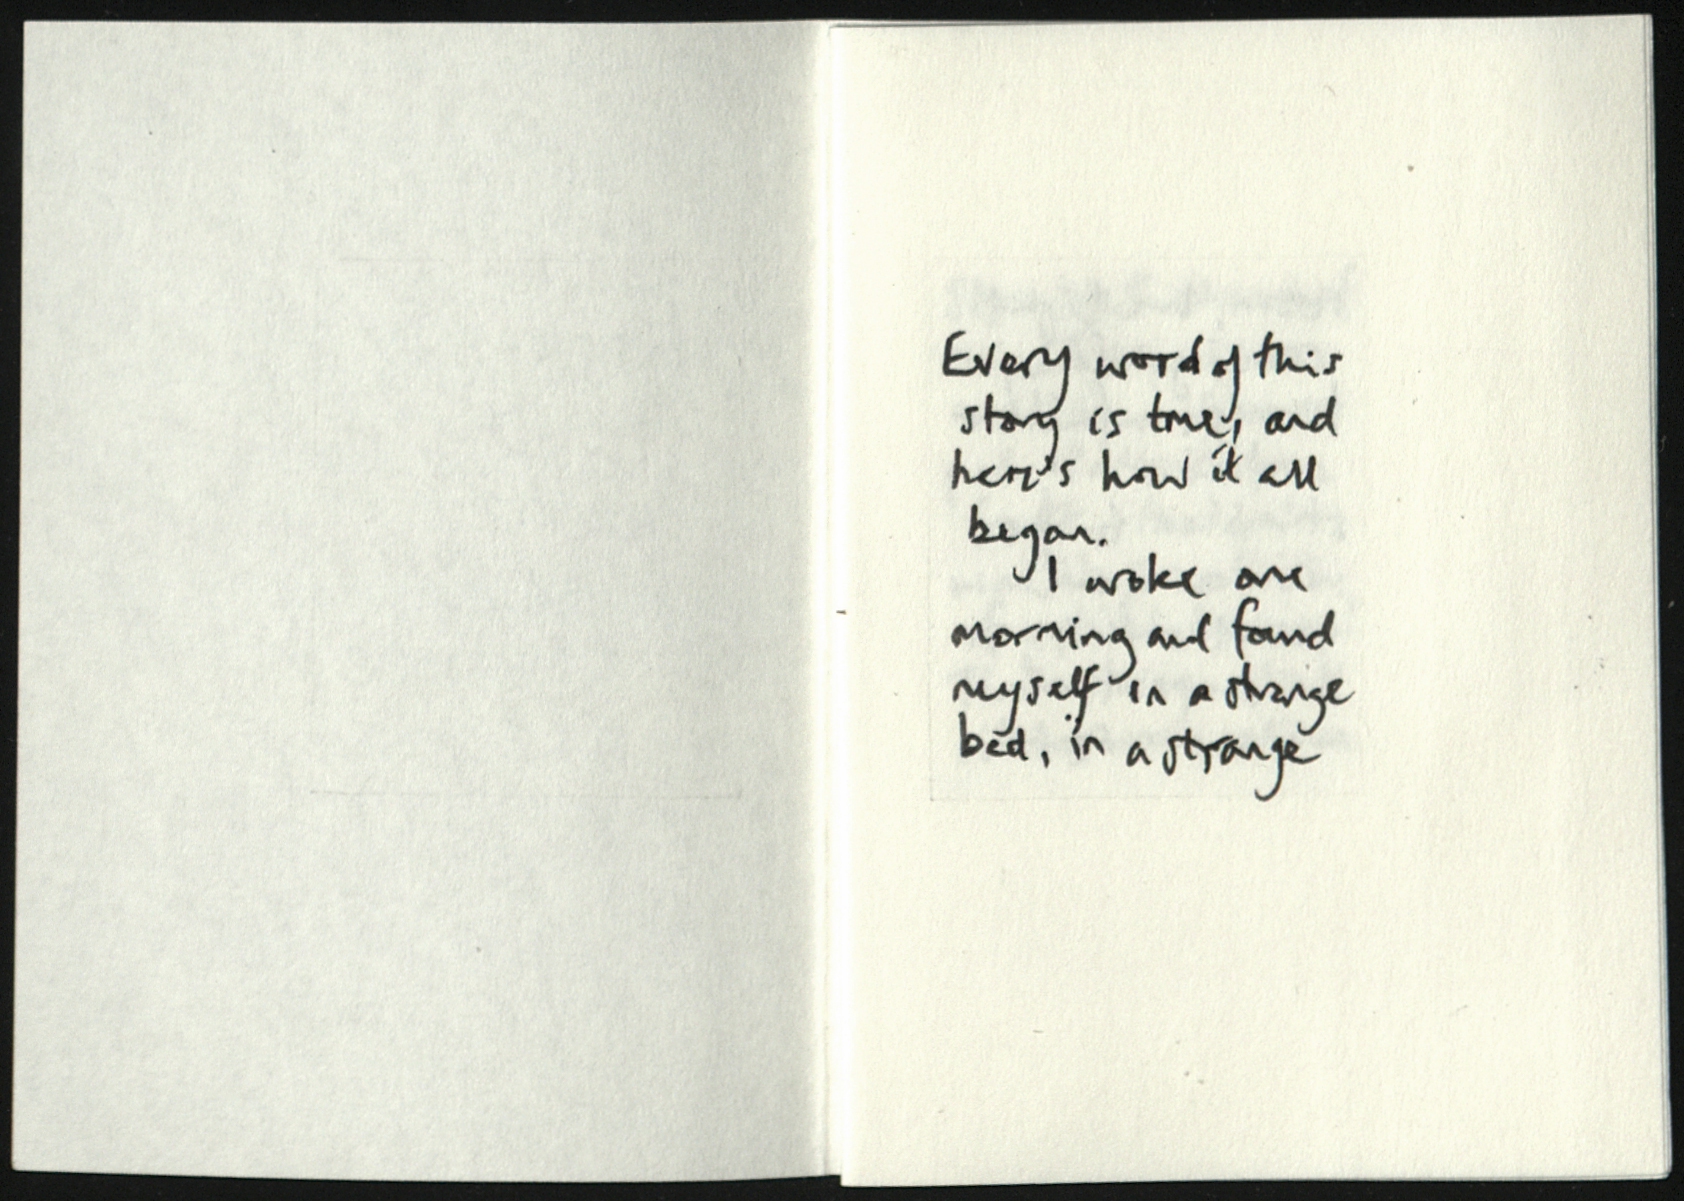 Every word of this
story is true, and
here's how it all
began.
I woke one
morning and found
myself in a strange
bed, in a strange